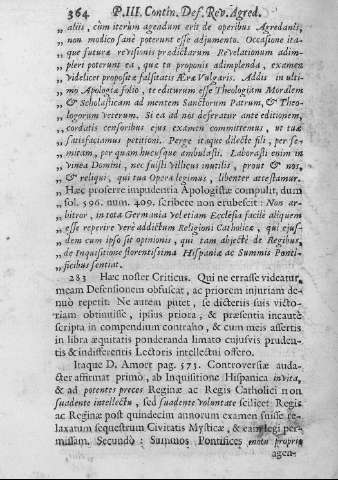 364 P. III. Contin. Def. Rev. Agred.
„ aliis, cùm iterùm agendum erit de operibus Agredanis,
„ non modico sanè poterunt esse adjumento. Occasione ita-
„ que futuræ revisionis prædictarum Revelationum adim-
„ pleri poterunt ea, quæ tu proponis adimplenda, examen
„ videlicet propositæ falsitatis Æræ Vulgaris. Addis in ulti-
„ mo Apologiæ folio, te editurum esse Theologiam Moralem
„ & Scholasticam ad mentem Sanctorum Patrum, & Theo-
„ logorum veterum. Si ea ad nos deferatur ante editionem,
„ cordatis censoribus ejus examen committemus, ut tuæ
„ satisfaciamus petitioni. Perge itaque dilecte fili, per se-
„ mitam, per quam hucusque ambulasti. Laborasti enim in
„ vinea Domini, nec fuisti villicus inutilis, prout & nos,
„ & reliqui, qui tua Opera legimus, libenter attestamur.
„ Hæc proferre impudentia Apologistæ compulit, dum
fol. 596. num. 409. scribere non erubescit: Non ar-
bitror, in tota Germania vel etiam Ecclesia facile aliquem
esse reperire verè addictum Religioni Catholicæ, qui ejus-
dem cum ipso sit opinionis, qui tam abjectè de Regibus,
de Inquisitione florentissima Hispaniæ ac Summis Ponti-
ficibus sentiat.
283 Hæc noster Criticus. Qui ne errasse videatur,
meam Defensionem obfuscat, ac priorem injuriam de-
nuò repetit. Ne autem putet, se dicteriis suis victo-
riam obtinuisse, ipsius priora, & præsentia incautè
scripta in compendium contraho, & cum meis assertis
in libra æquitatis ponderanda limato cujusvis pruden-
tis & indifferentis Lectoris intellectui offero.
Itaque D. Amort pag. 573. Controversiæ audac-
ter affirmat primò, ab Inquisitione Hispanica invita,
& ad potentes preces Reginæ ac Regis Catholici non
suadente intellectu, sed suadente voluntate scilicet Regis
ac Reginæ post quindecim annorum examen fuisse re-
laxatum sequestrum Civitatis Mysticæ, & eam legi per-
missam. Secundò: Summos Pontifices motu proprio
agen-